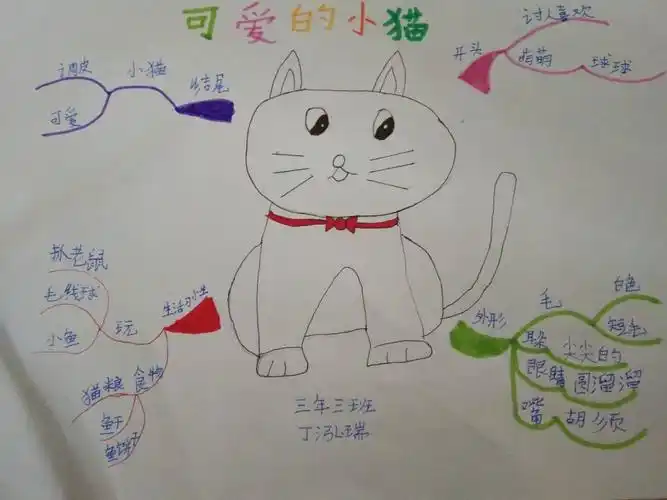 可爱的小猫
开头
讨人喜欢
萌萌 球球
外形
毛
白色
短毛
躲 尖尖的
眼睛 圆溜溜
嘴 胡须
生活习性
玩
抓老鼠
毛线球
小鱼
食物
猫粮
鱼干
鱼饼干
结尾
小猫
调皮
可爱
三年三班
丁泓瑞